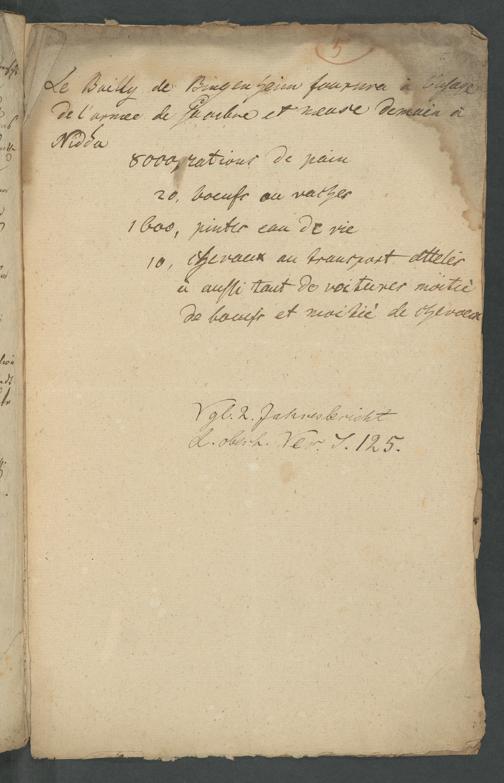 5
Le Bailly de Bingenheim fournira à l'usage
de l'armée de Sambre et meuse demain à
Nidda
8000, rations de pain
20, boeufs ou vaches
1600, pintes eau de vie
10, chevaux au transport attelés
à aussi tant de voitures moitié
de boeufs et moitié de chevaux
Vgl. 2. Jahresbericht
d. oberh. Ver. S. 125.